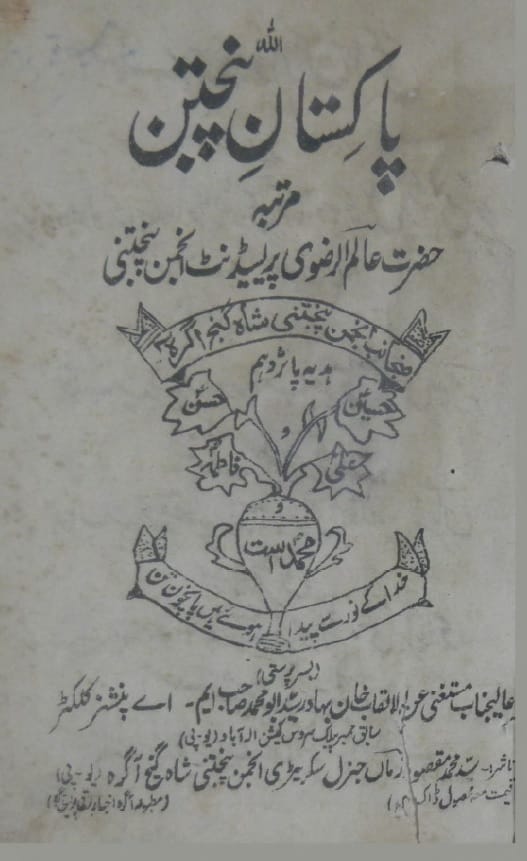 اللہ
پاکِستانِ پنجتن
مرتبہ
حضرت عالم الرضوی پریسیڈنٹ انجمن پنجتنی
منجانب انجمن پنجتنی شاہ گنج آگرہ
ہدیہ پانزدہم
حسن حسین
فاطمہ علی
و
محمد است
خدا کے نور سے پیدا ہوئے ہیں پانچوں تن
(بسرپرستی)
عالیجناب مستغنی عن الالقاب خان بہادر سید ابو محمد صاحب ایم۔ اے پنشنر کلکٹر
سابق ممبر پبلک سروس کمیشن الہ آباد (یو۔پی)
ناشر:۔ سید محمد مقصود زماں جنرل سکریٹری انجمن پنجتنی شاہ گنج آگرہ (یو۔پی)
قیمت محصول ڈاک (مطبوعہ آگرہ اخبار